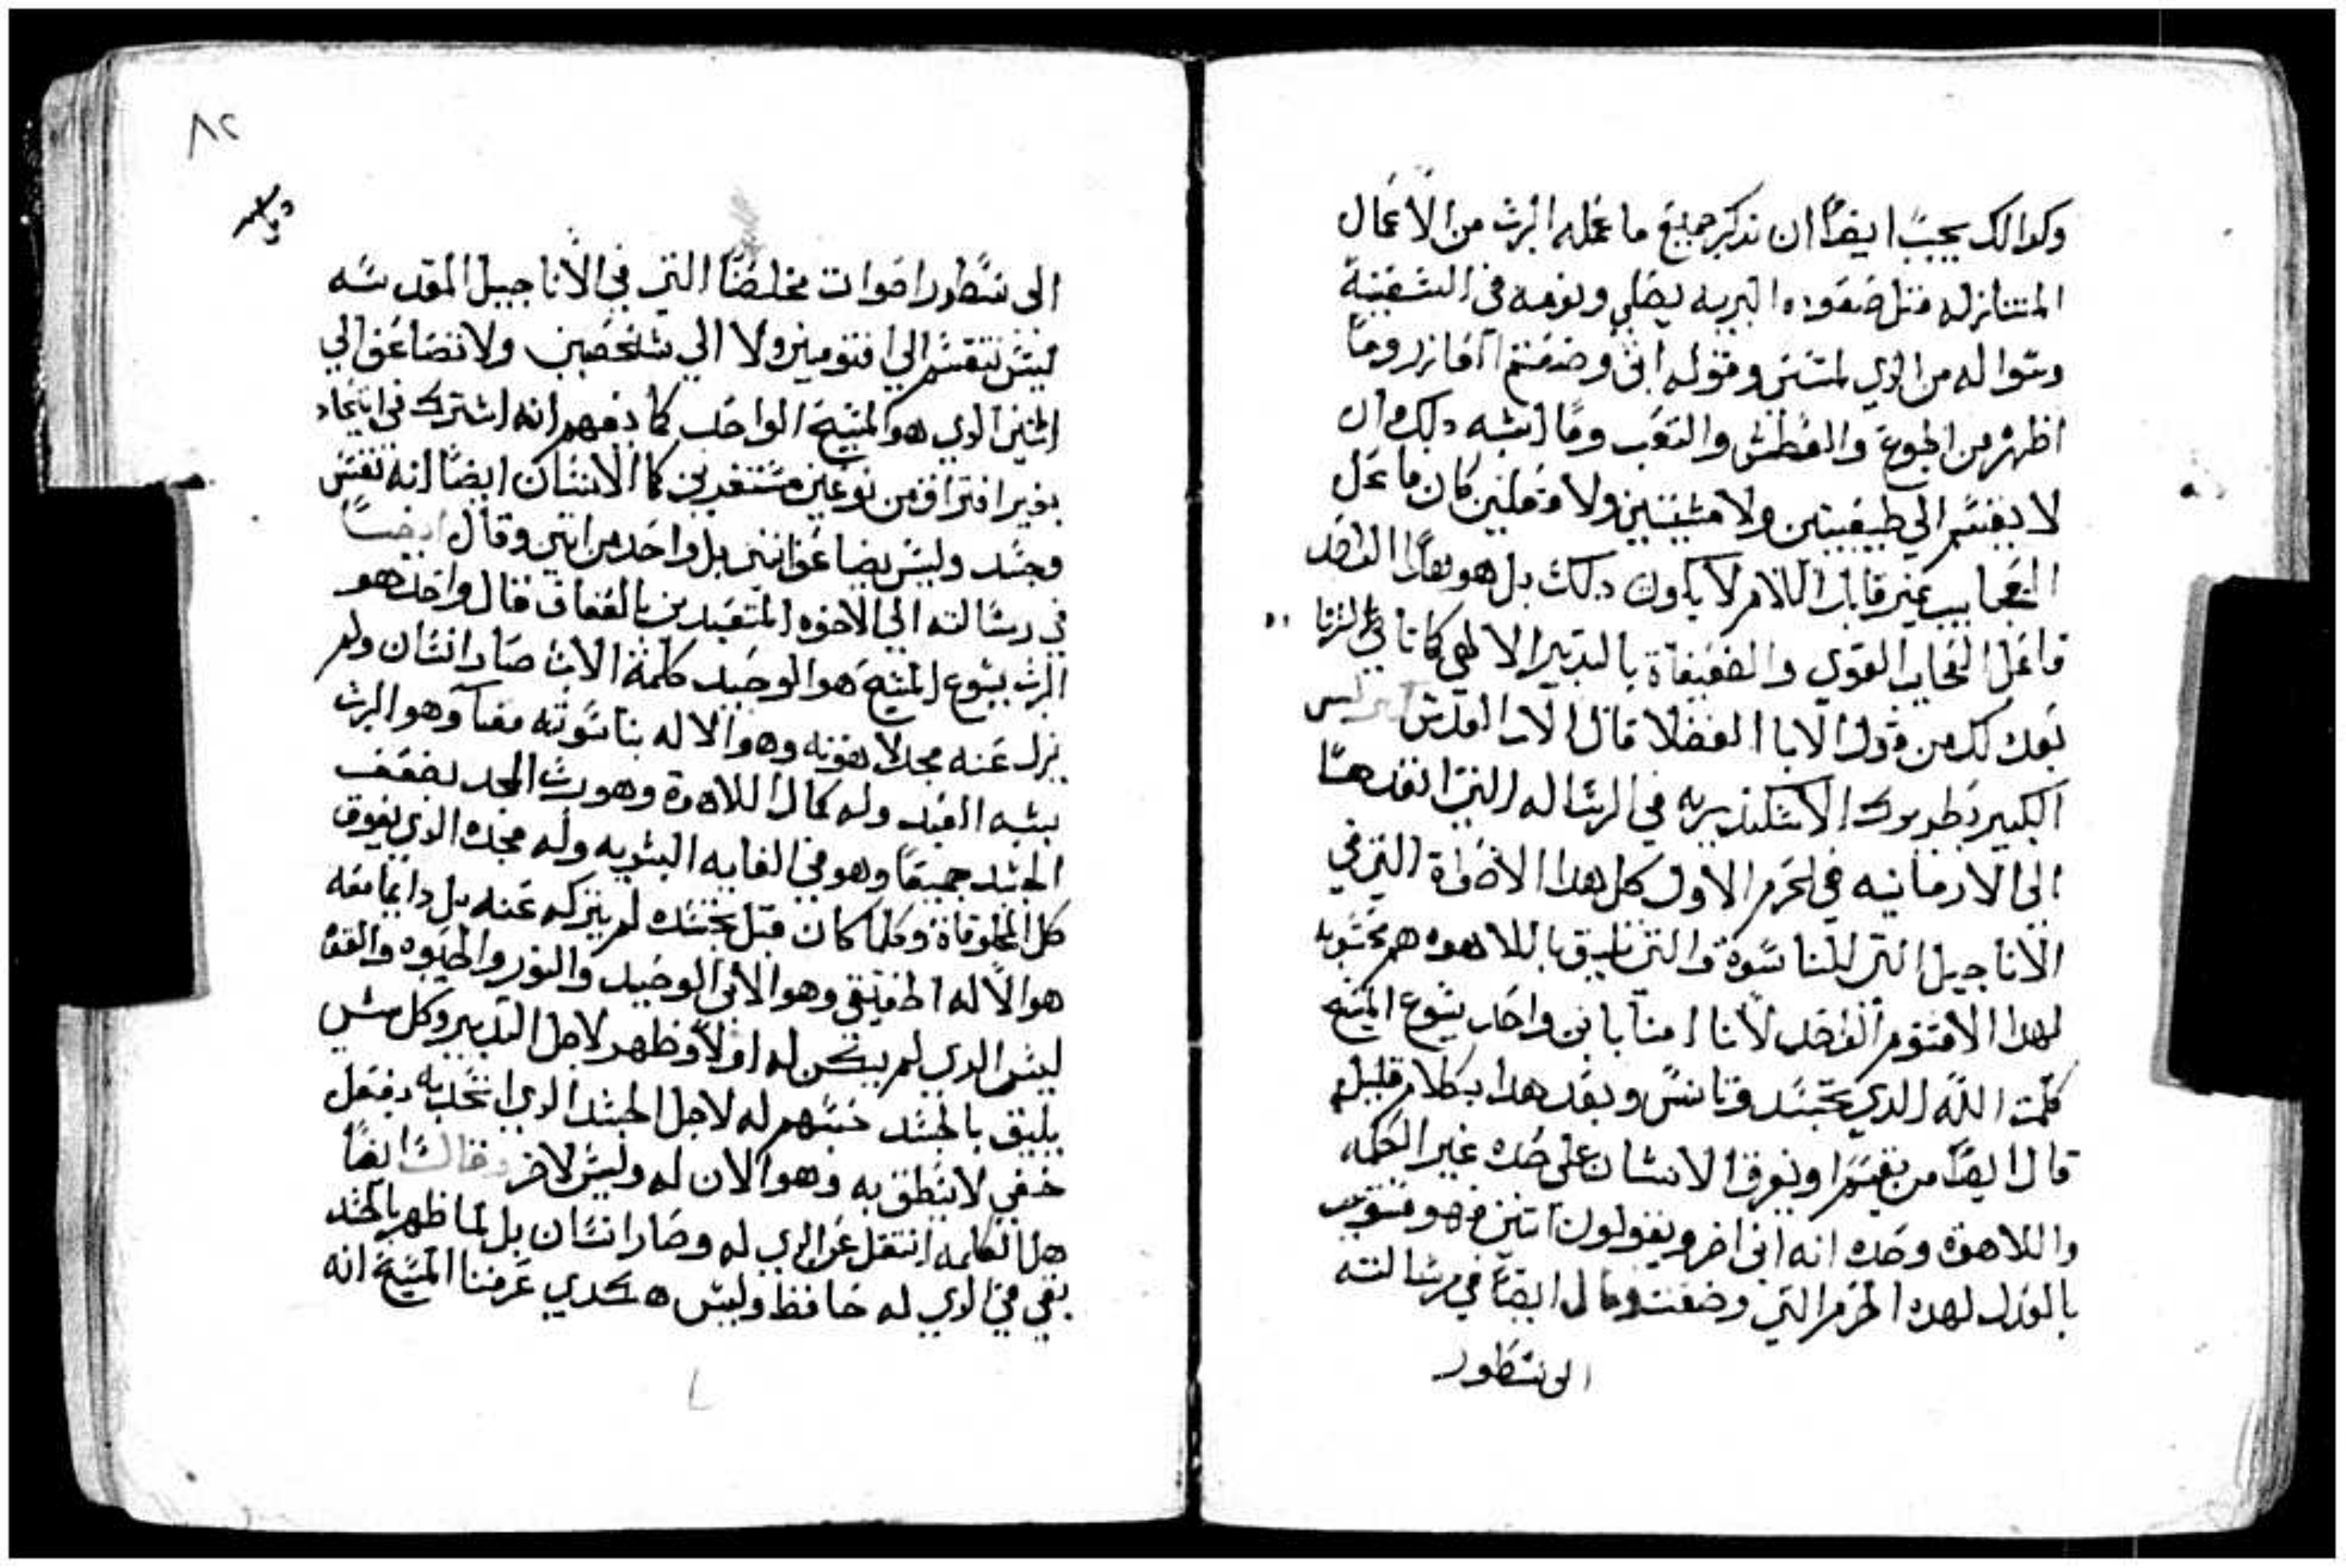 وكدالك يجب ايضا ان نذكر جميع ما عمله الرب من الاعمال
المتنازله مثل صعوده البريه يصلي ونومه في السفينة
وسواله من الدي لمسني وقوله اني وضعتم العازر وما
اظهره من الجوع والعطش والتعب وما اشبه دلك وان
لا يقسم الي طبيعتين ولا مشيتين ولا فعلين كان ما عمل
العجايب غير قابل الالام لا يكون دلك بل هو بهذا الواحد
فاعل العجايب القوي والضعيفاة بالتدبير الالهي كاناتي لنزنا
بعد لك من قول الابا الفضلا قال الاب القديس كيرلس
الكبير بطريرك الاسكندريه في الرساله التي انفدها
الى الارمانيه في الحرم الاول كل هدا الاصواة التي في
الاناجيل التي للناسوة والتي تليق باللاهوة هم محسوبه
لهدا الاقنوم الواحد لأننا امنا بابن واحد يسوع المسيح
كلمت الله الدي تجسد وتانس وبعد هدا بكلام قليل
قال ايضا من يقسم او يفرق الانسان على حده غير الكلمه
واللاهوة وحده انه ابن اخر ويقولون اتنين فهو منسوب
بالعدل لهده الحرم التي وضعت وقال ايضا في رسالته
الى نسطور
٨٢
الى نسطور اصوات مخلصنا التي في الاناجيل المقدسه
ليس نتقسم الي اقنومين ولا الي شخصين ولا تضاعف الي
اثنين الدي هو المسيح الواحد كما يفهم انه اشترك في اتحاد
بغير افتراق من نوعين مستفردين كما الانسان ايضا انه نفس
وجسد وليس يضاعف اتنين بل واحد من اتنين وقال ايضا
في رسالته الي الاخوه المتعبدين بالعفاف قال واحد هو
الرب يسوع المسيح هو الوحيد كلمة الاب صار انسان ولم
يزل عنه مجد لاهوته وهو الاله بناسوته معا وهو الرب
بشبه العبد وله كمال اللاهوة وهو رب المجد بضعف
الجسد جميعا وهو في الغايه البشريه وله مجده الدي يفوق
كل المخلوقاة وكلما كان قبل تجسده لم يتركه عنه بل دايما معه
هو الاله الحقيقي وهو الابن الوحيد والنور والحيوه والقوه
ليس الدي لم يكن له اولا وظهر لاجل التدبير وكل شي
يليق بالجسد نسبهم له لاجل الجسد الدي اتحد به بفعل
خفي لا ينطق به وهو الان له وليس لاخر وقال ايضا
هل الكلمه انتقل عن الدي له وصار انسان بل لما ظهر بالجسد
بقي في الدي له حافظ وليس هكدي عرفنا المسيح انه